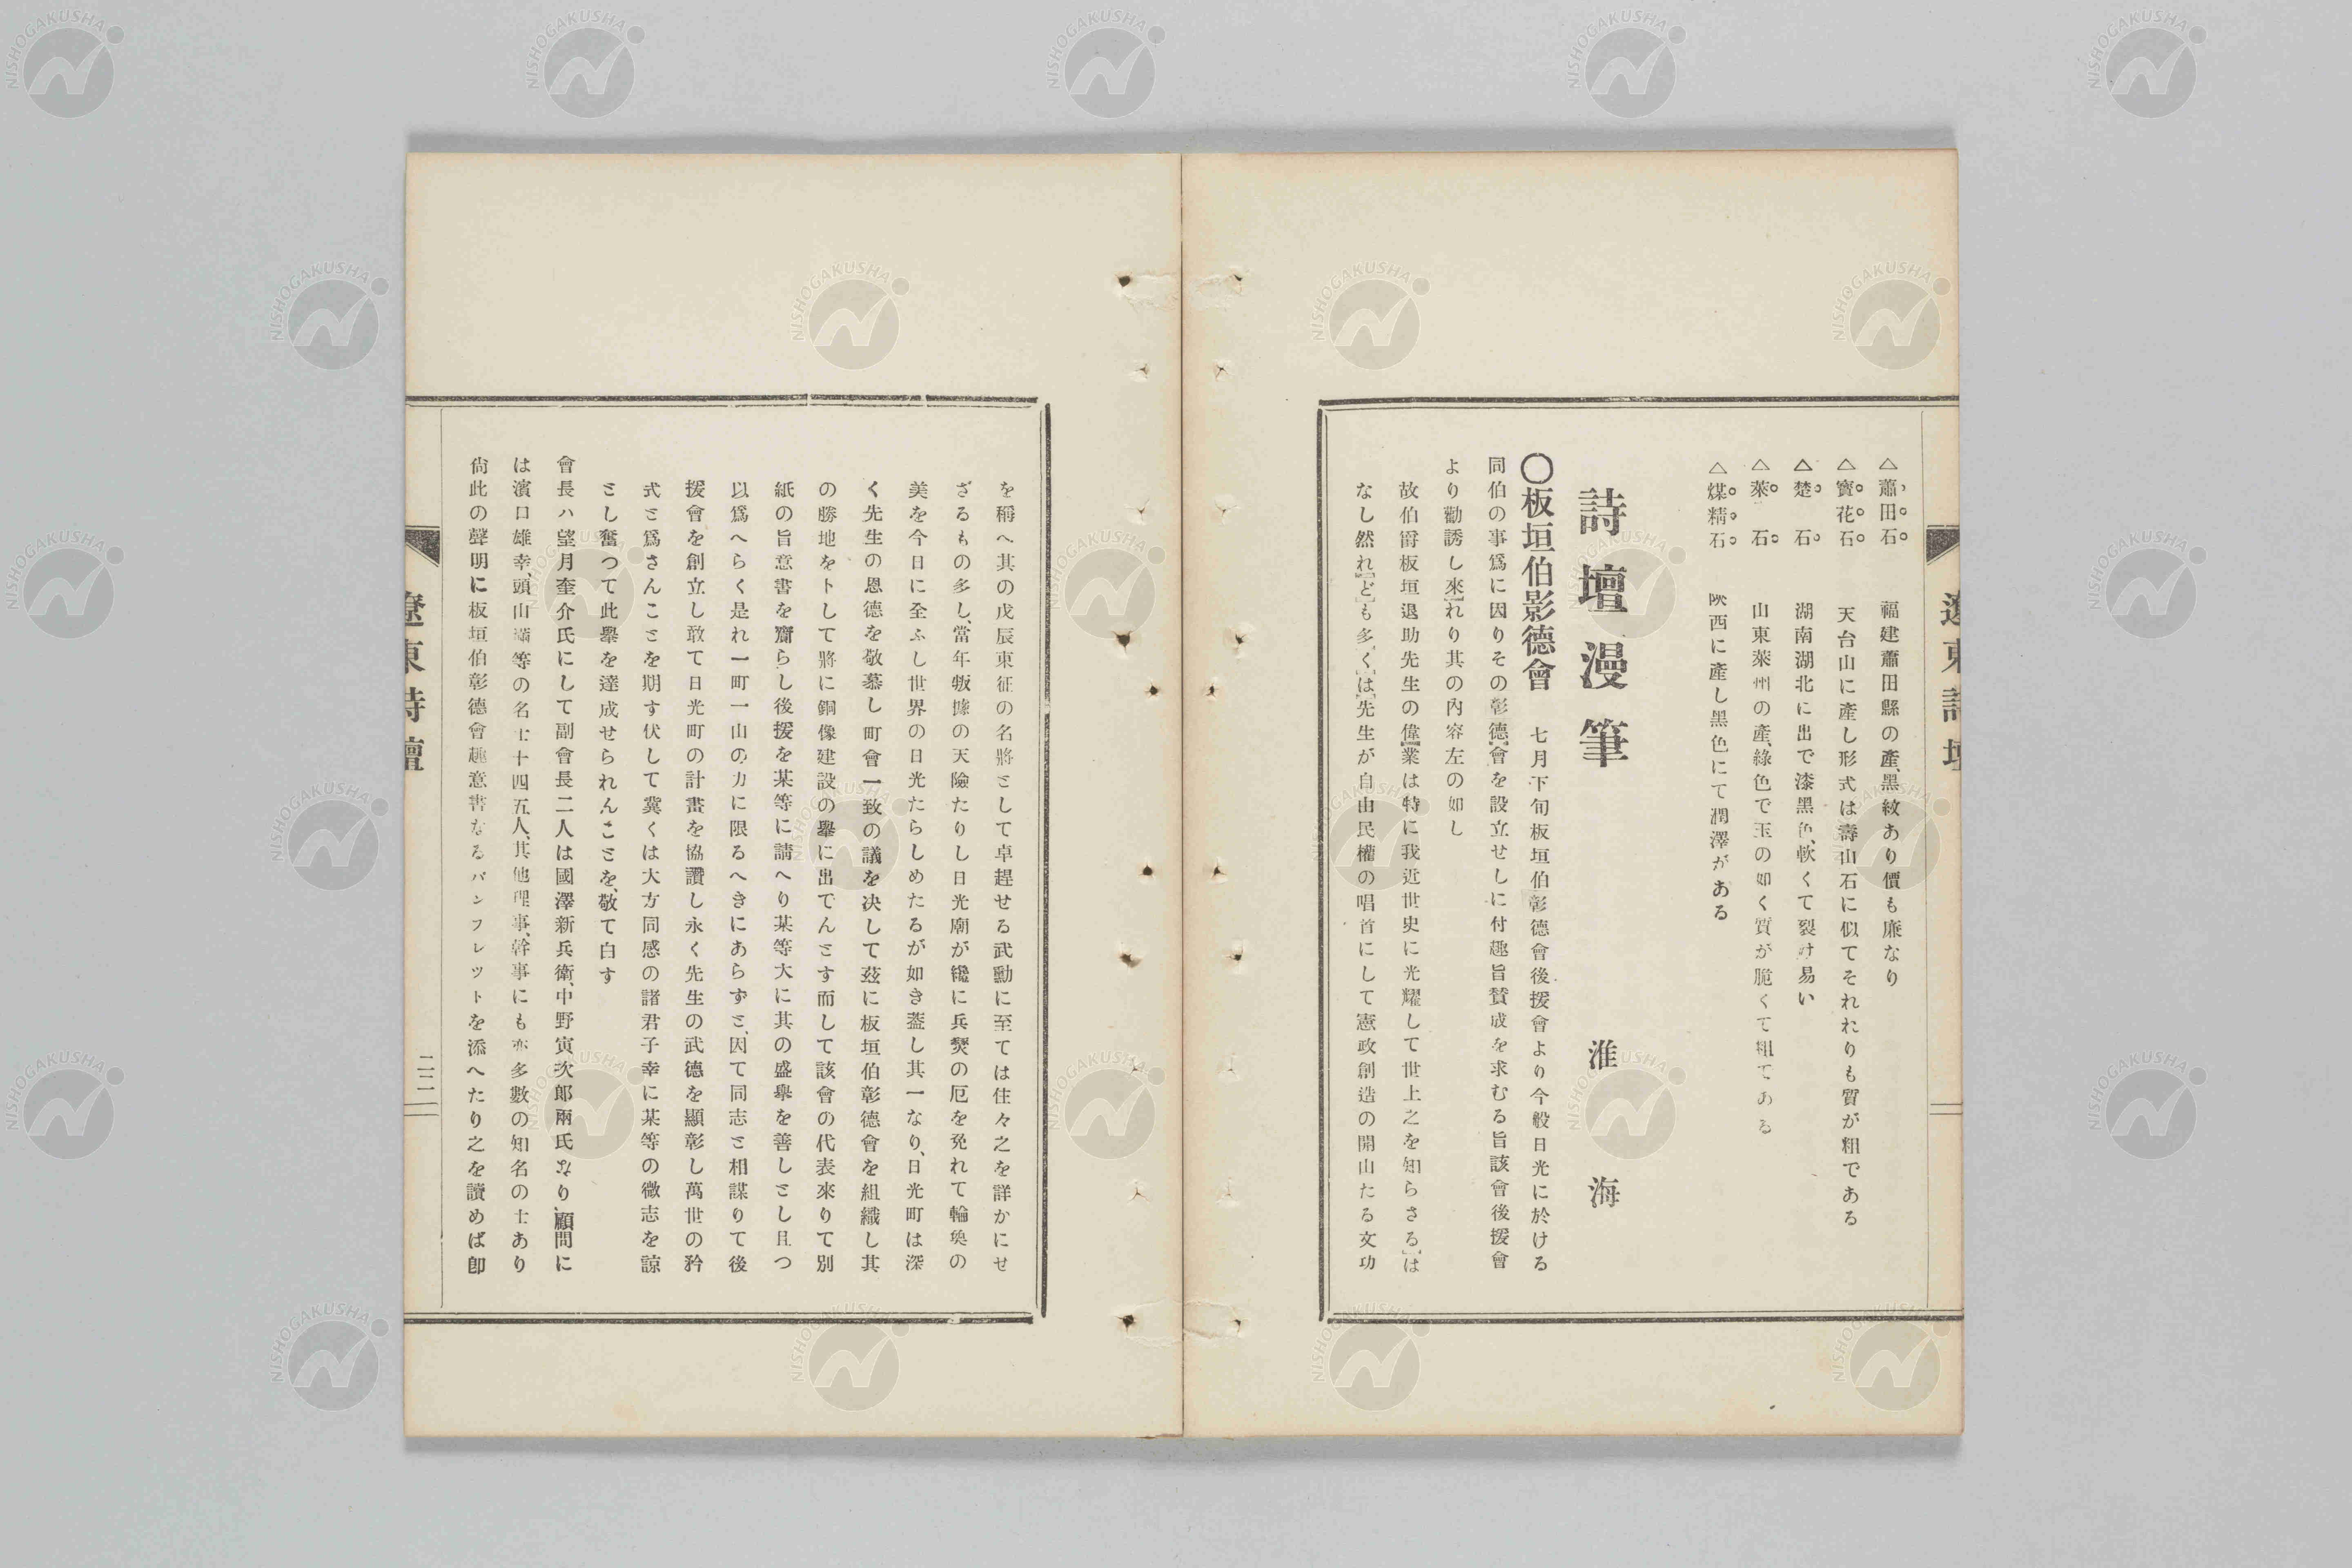 遼東詩壇
△蕭田石　福建蕭田縣の產、黑紋あり價も廉なり
△寶花石　天台山に產し形式は壽山石に似てそれれりも質が粗である
△楚　石　湖南湖北に出で漆黑色、軟くて裂け易い
△萊　石　山東萊州の產、綠色で玉の如く質が脆くて粗てある
△煤精石　陜西に產し黑色にて潤澤がある
詩壇漫筆　淮海
〇板垣伯影德會　七月下旬板垣伯彰德會後援會より今般日光に於ける
同伯の事爲に因りその彰德會を設立せしに付趣旨賛成を求むる旨該會後援會
より勸誘し來れり其の內容左の如し
故伯爵板垣退助先生の偉業は特に我近世史に光耀して世上之を知らさるは
なし然れども多くは先生が自由民權の唱首にして憲政創造の開山たる文功
を稱へ其の戊辰東征の名將として卓趕せる武勳に至ては往々之を詳かにせ
ざるもの多し、當年叛據の天險たりし日光廟が纔に兵燹の厄を免れて輪奐の
美を今日に全ふし世界の日光たらしめたるが如き蓋し其一なり、日光町は深
く先生の恩德を敬慕し町會一致の議を決して玆に板垣伯彰德會を組織し其
の勝地をトして將に銅像建設の擧に出でんとす而して該會の代表來りて別
紙の旨意書を齎らし後援を某等に請へり某等大に其の盛擧を善しとし且つ
以爲へらく是れ一町一山の力に限るへきにあらずと、因て同志と相謀りて後
援會を創立し敢て日光町の計畫を協讚し永く先生の武德を顯彰し萬世の矜
式と爲さんことを期す伏して冀くは大方同感の諸君子幸に某等の微志を諒
とし奮つて此擧を達成せられんことを、敬て白す
會長ハ望月奎介氏にして副會長二人は國澤新兵衛、中野寅次郎兩氏なり、顧問に
は濱口雄幸、頭山滿等の名士十四五人、其他理事、幹事にも亦多數の知名の士あり
尙此の聲明に板垣伯彰德會趣意書なるパンフレットを添へたり之を讀めば卽
遼東詩壇　二二